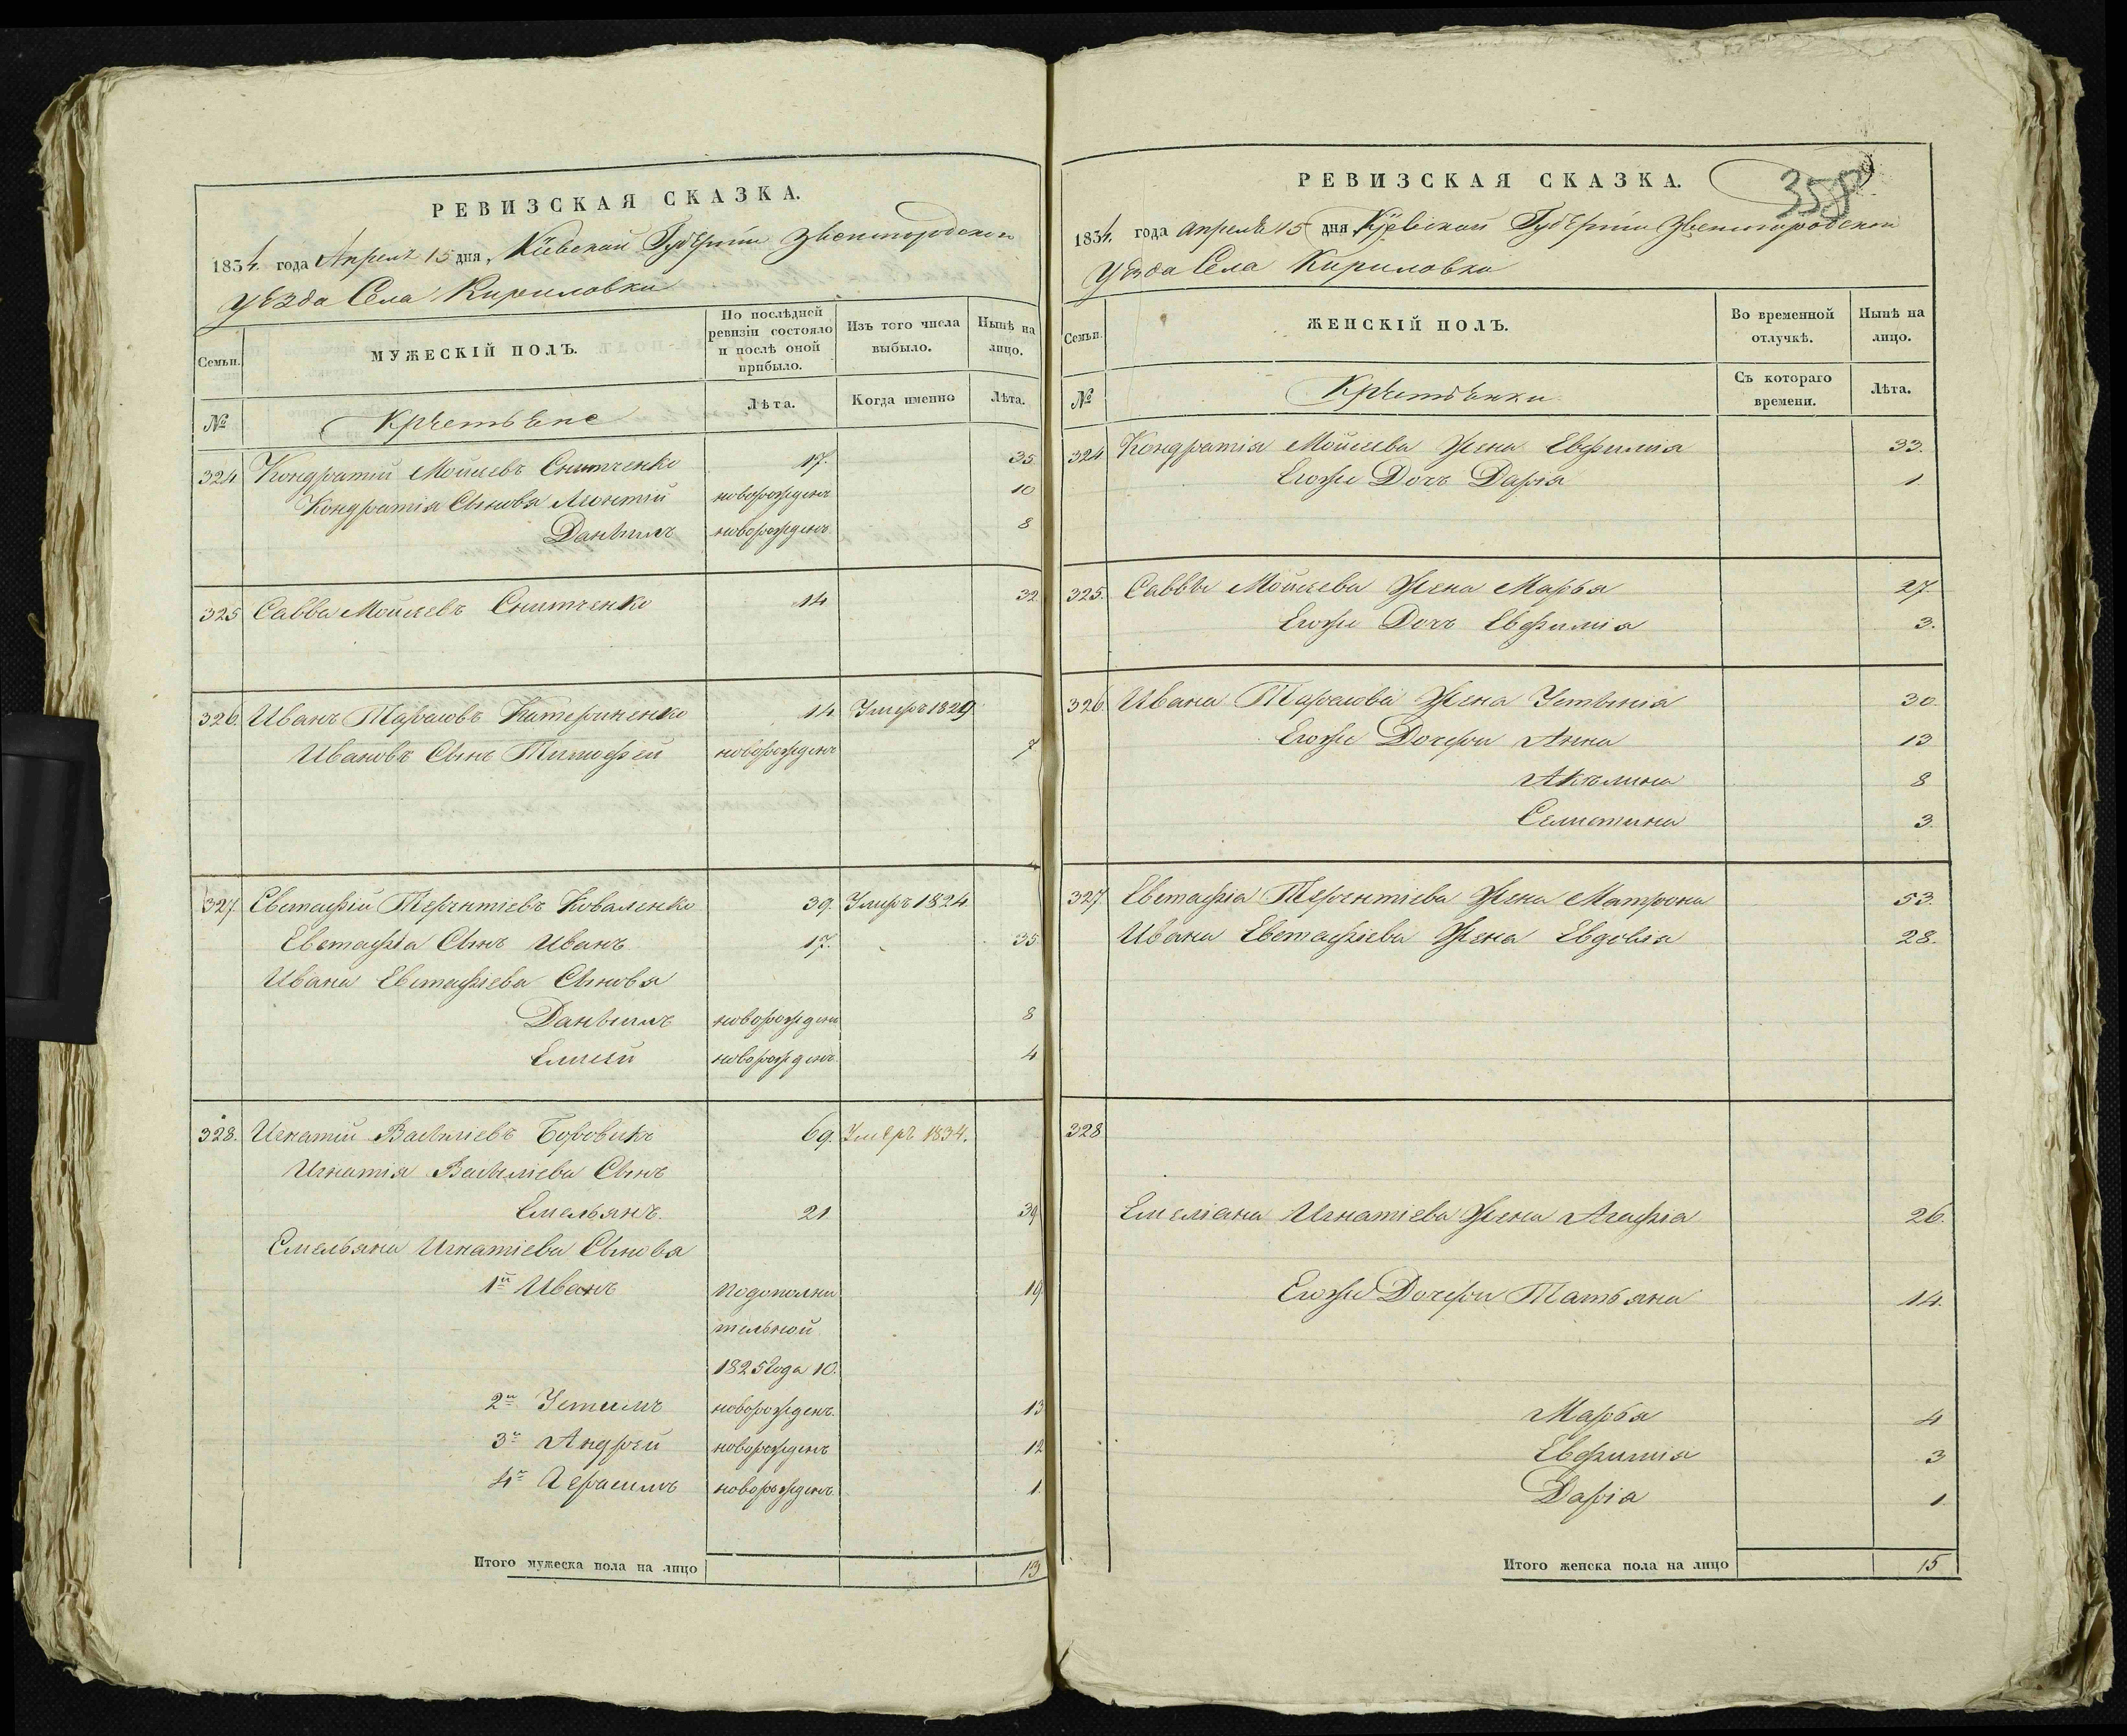 РЕВИЗСКАЯ СКАЗКА.
1834 года Апреля 15 дня, Кіевской Губерніи Звенигородскаго
уѣзда Села Кириловки
Семьи.
МУЖЕСКІЙ ПОЛЪ.
По послѣдней ревизіи состояло и послѣ оной прибыло.
Изъ того числа выбыло.
Нынѣ на лицо.
№
Крестьяне
Лѣта.
Когда именно
Лѣта.
324 Кондратій Мойсеевъ Снитченко 17. 35.
Кондратія Сыновя Леонтій новорожденъ 10
Даніилъ новорожденъ 8
325 Савва Мойсеевъ Снитченко 14 32
326. Иванъ Тарасовъ Катериненко 14 Умеръ 1829
Ивановъ Сынъ Тимофей новорожденъ 7
327. Евстафій Терентіевъ Коваленко 39. Умеръ 1824
Евстафіа Сынъ Иванъ 17. 35.
Ивана Евстафіева Сыновя
Даніилъ новорожден 8
Елисей новорожденъ 4
328. Игнатій Василіевъ Боровикъ 69. Умеръ 1834.
Игнатія Василіева Сынъ
Емельянъ. 21 39
Емельяна Игнатіева Сыновя
1й Иванъ подополни 19.
тельной
1825 Года 10.
2й Устимъ новорожденъ. 13
3й Андрей новорожденъ 12
4й Герасимъ новорожденъ 1.
Итого мужеска пола на лицо 13
РЕВИЗСКАЯ СКАЗКА.
358
1834. года апреля 15 дня Кіевской Губерніи Звенигородскаго
Уѣзда Села Кириловки
Семьи.
ЖЕНСКІЙ ПОЛЪ.
Во временной отлучкѣ.
Нынѣ на лицо.
№
Крестьянки
Съ котораго времени.
Лѣта.
324 Кондратія Мойсеева Жена Евфимія 33.
Егоже Дочъ Дарія 1
325. Саввы Мойсеева Жена Марья 27.
Егоже Дочъ Евфимія 3.
326. Ивана Тарасова Жена Устинія 30.
Егоже Дочери Анна 13
Акилина 8
3.
327. Евстафіа Терентіева Жена Матрона 53.
Ивана Евстафіева Жена Евдокія 28.
328
Емеліана Игнатіева Жена Агафіа 26.
Егоже Дочери Татьяна 14.
Марья 4
Евфимія 3
Даріа 1
Итого женска пола на лицо 15